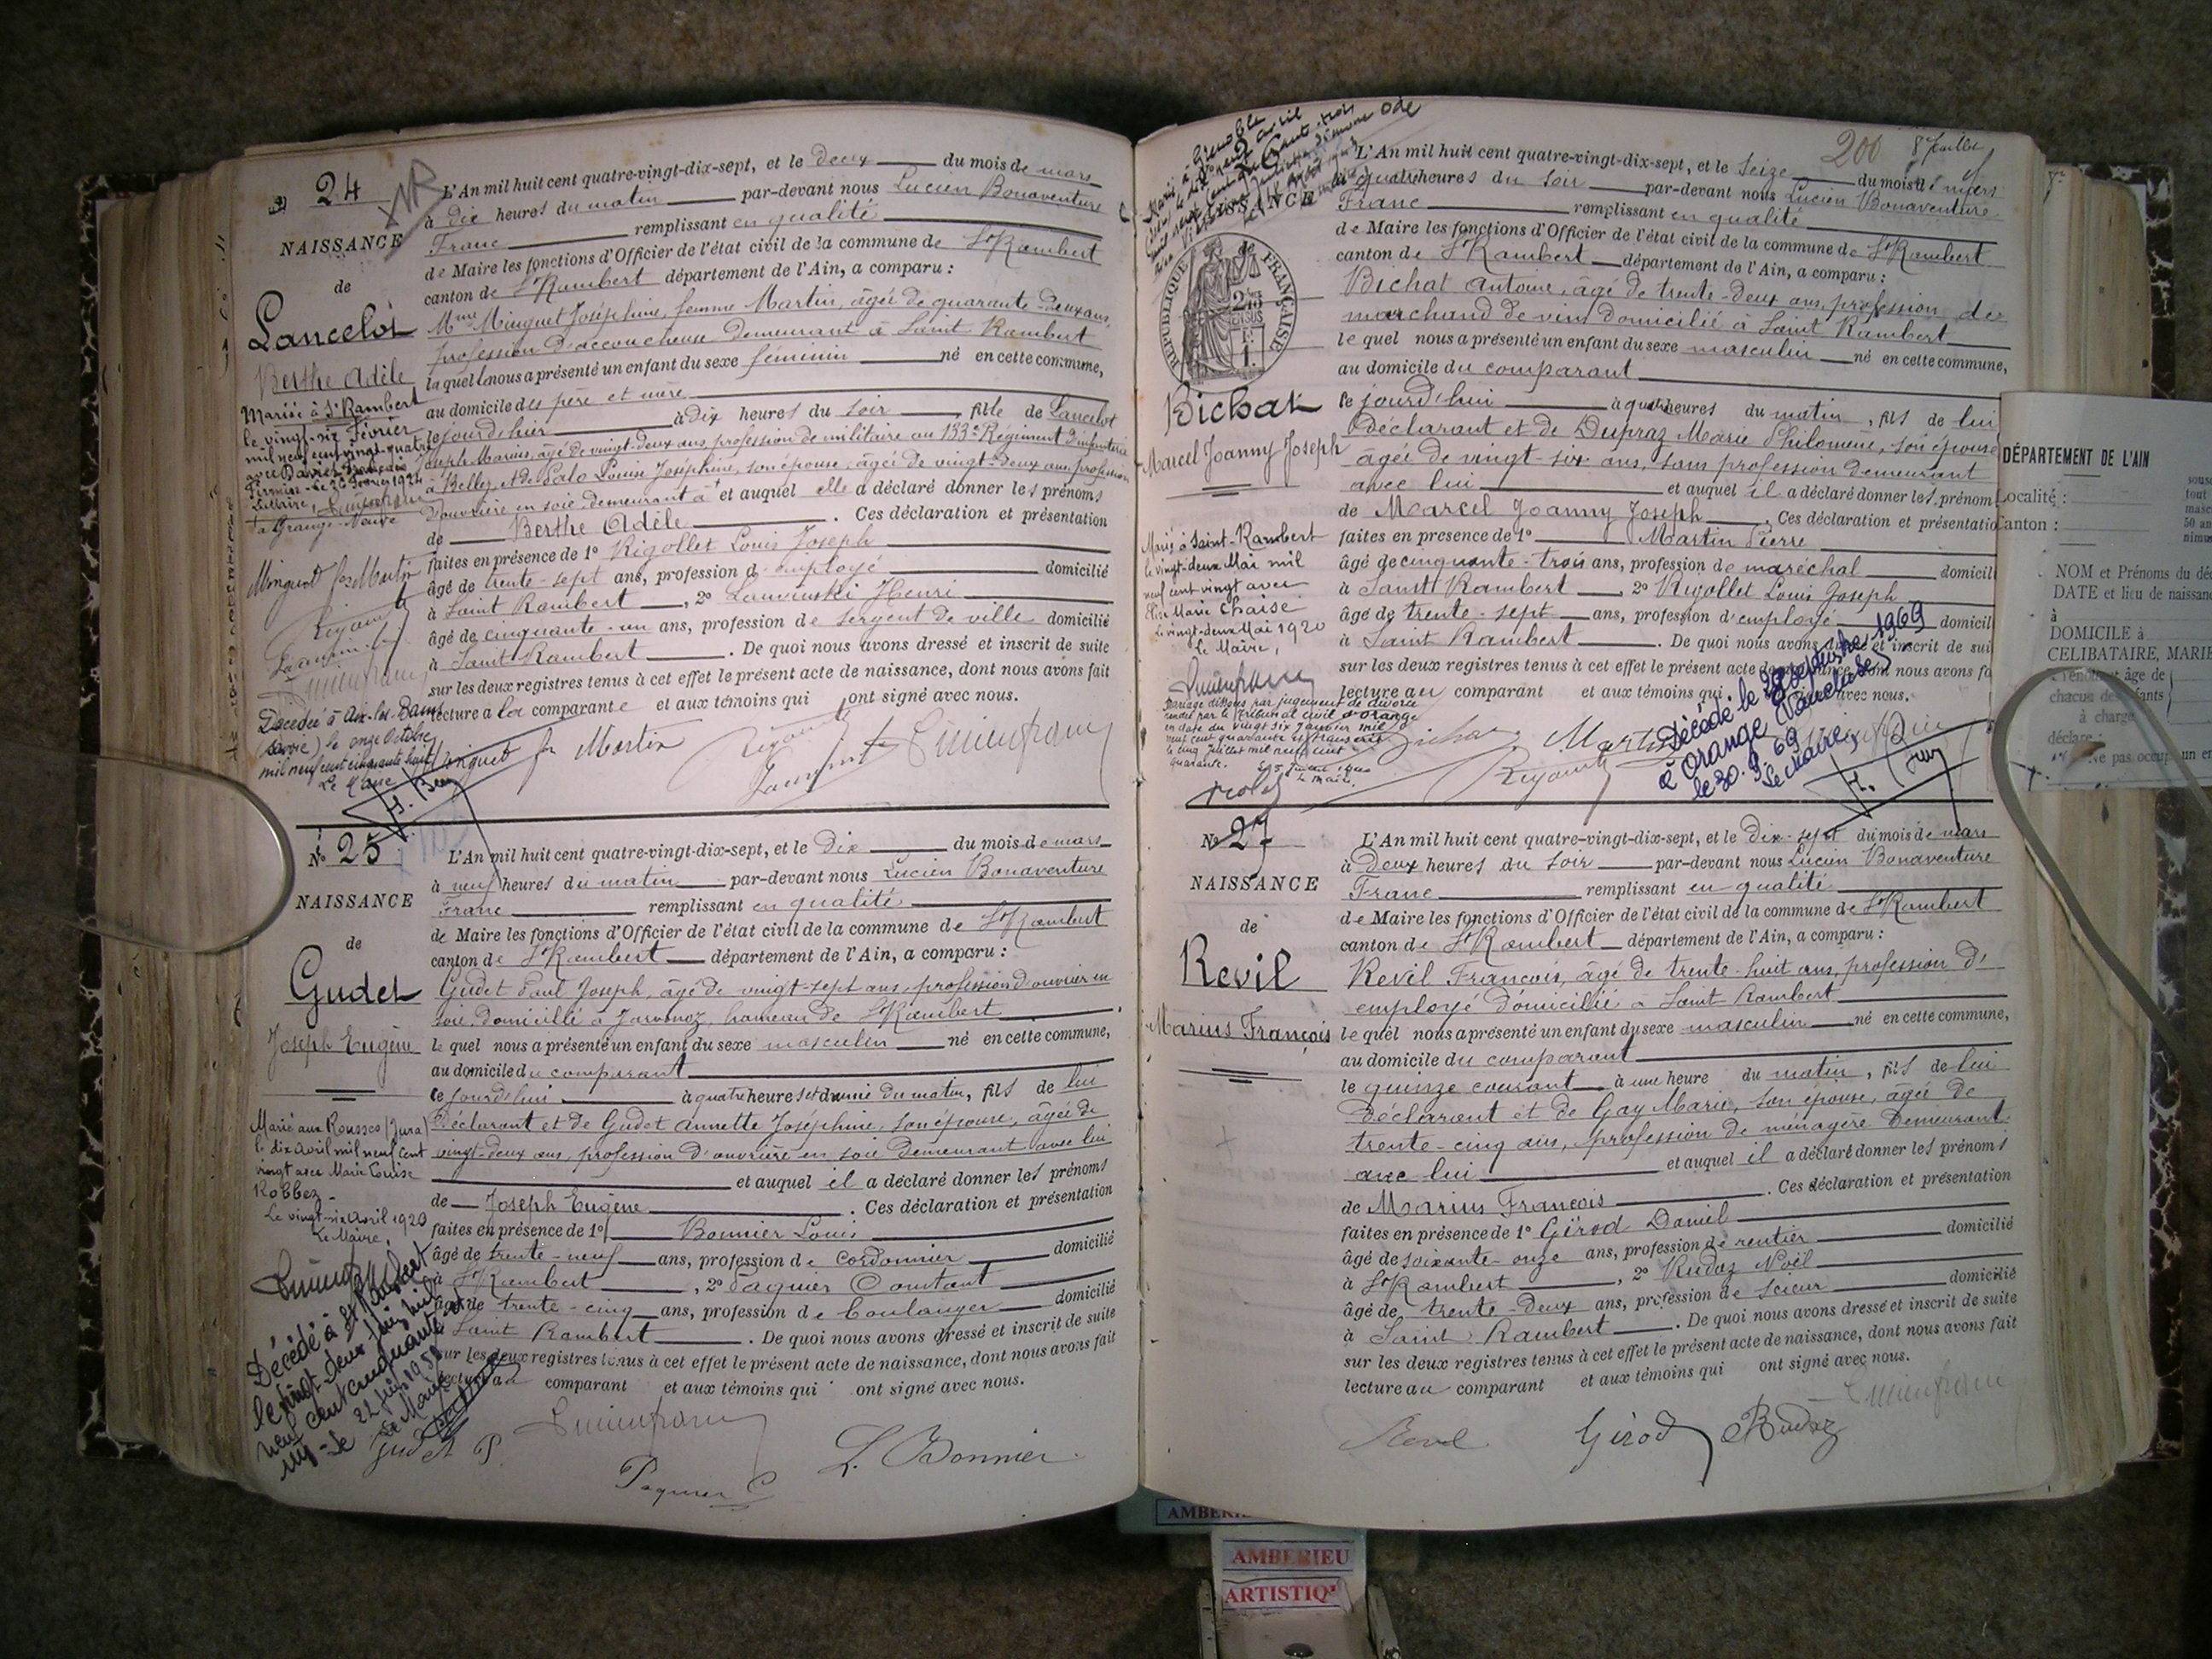 N° 24
NAISSANCE
de
Lancelot
Berthe Adèle
Mariée à St Rambert
le vingt-six Février
mil neuf cent vingt-quatre
L'An mil huit cent quatre-vingt-dix-sept, et le deux du mois de mars
à dix heures du matin par-devant nous Lucien Bonaventure
Franc remplissant en qualité
de Maire les fonctions d'Officier de l'état civil de la commune de St Rambert
canton de St Rambert département de l'Ain, a comparu :
Mme Minguet Joséphine, femme Martin, âgée de quarante-deux ans,
profession d'accoucheuse demeurant à Saint Rambert
laquelle nous a présenté un enfant du sexe féminin né en cette commune,
au domicile des père et mère
à dix heures du soir, fille de Lancelot
Joseph Marius, âgé de vingt-deux ans profession de militaire au 133e Régiment d'infanterie
à Belley, et de Lalo Louise Joséphine, son épouse, âgée de vingt-deux ans, profession
d'ouvrière en soie, demeurant à et auquel elle a déclaré donner les prénoms
de Berthe Adèle. Ces déclaration et présentation
faites en présence de 1° Rigollet Louis Joseph
âgé de trente-sept ans, profession d'employé domicilié
à Saint Rambert, 2° Henri
âgé de cinquante-un ans, profession de sergent de ville domicilié
à Saint Rambert. De quoi nous avons dressé et inscrit de suite
sur les deux registres tenus à cet effet le présent acte de naissance, dont nous avons fait
lecture a la comparante et aux témoins qui ont signé avec nous.
Décédée à Aix-les-Bains
(Savoie) le onze Octobre
mil neuf cent cinquante huit
Le Maire
N° 25
NAISSANCE
de
Gudet
Joseph Eugène
Marié aux Rousses (Jura)
le dix avril mil neuf cent
vingt avec Marie Louise
Robbez
Le vingt-six Avril 1920
Le Maire,
Décédé à St Rambert
le vingt-deux juin mil
neuf cent cinquante et
un - le 22 juin 1951
Le Maire
L'An mil huit cent quatre-vingt-dix-sept, et le dix du mois de mars
à neuf heures du matin par-devant nous Lucien Bonaventure
Franc remplissant en qualité
de Maire les fonctions d'Officier de l'état civil de la commune de St Rambert
canton de St Rambert département de l'Ain, a comparu :
Gudet Paul Joseph, âgé de vingt-sept ans, profession d'ouvrier en
soie, domicilié à Javornoz, hameau de St Rambert
lequel nous a présenté un enfant du sexe masculin né en cette commune,
au domicile du comparant
ce jourd'hui à quatre heures et demie du matin, fils de lui
déclarant et de Gudet Annette Joséphine, son épouse, âgée de
vingt-deux ans, profession d'ouvrière en soie demeurant avec lui
et auquel il a déclaré donner les prénoms
de Joseph Eugène. Ces déclaration et présentation
faites en présence de 1° Bonnier Louis
âgé de trente-neuf ans, profession de cordonnier domicilié
à St Rambert, 2° Paquier Constant
âgé de trente-cinq ans, profession de boulanger domicilié
à Saint Rambert. De quoi nous avons dressé et inscrit de suite
sur les deux registres tenus à cet effet le présent acte de naissance, dont nous avons fait
lecture au comparant et aux témoins qui ont signé avec nous.
Gudet P.
Paquier C
L. Bonnier
200
8 Juillet
26
NAISSANCE
RÉPUBLIQUE FRANÇAISE
Bichat
Marcel Joanny Joseph
Marié à Saint-Rambert
le vingt-deux Mai mil
neuf cent vingt avec
Elise Marie Chaise
Le vingt-deux Mai 1920
Le Maire,
Mariage dissous par jugement de divorce
rendu par le tribunal civil d'Orange
en date du vingt six Janvier mil
neuf cent quarante et transcrit
le cinq Juillet mil neuf cent
quarante.
L'An mil huit cent quatre-vingt-dix-sept, et le seize du mois de mars
à quatre heures du soir par-devant nous Lucien Bonaventure
Franc remplissant en qualité
de Maire les fonctions d'Officier de l'état civil de la commune de St Rambert
canton de St Rambert département de l'Ain, a comparu :
Bichat Antoine, âgé de trente-deux ans, profession de
marchand de vins domicilié à Saint Rambert
lequel nous a présenté un enfant du sexe masculin né en cette commune,
au domicile du comparant
ce jourd'hui à quatre heures du matin, fils de lui
déclarant et de Dupraz Marie Philomène, son épouse
âgée de vingt-six ans, sans profession demeurant
avec lui et auquel il a déclaré donner les prénom
de Marcel Joanny Joseph. Ces déclaration et présentatio
faites en présence de 1° Martin Pierre
âgé de cinquante-trois ans, profession de maréchal domicil
à Saint Rambert, 2° Rigollet Louis Joseph
âgé de trente-sept ans, profession d'employé domicil
à Saint Rambert. De quoi nous avons dressé et inscrit de sui
sur les deux registres tenus à cet effet le présent acte de naissance, dont nous avons fa
lecture au comparant et aux témoins qui ont signé avec nous.
Décédé le 29 septembre 1969
à Orange (Vaucluse)
le 30.9.69
Le Maire,
N° 27
NAISSANCE
de
Revil
Marius François
L'An mil huit cent quatre-vingt-dix-sept, et le dix-sept du mois de mars
à deux heures du soir par-devant nous Lucien Bonaventure
Franc remplissant en qualité
de Maire les fonctions d'Officier de l'état civil de la commune de St Rambert
canton de St Rambert département de l'Ain, a comparu :
Revil François, âgé de trente-huit ans, profession d'
employé domicilié à Saint Rambert
lequel nous a présenté un enfant du sexe masculin né en cette commune,
au domicile du comparant
le quinze courant à une heure du matin, fils de lui
déclarant et de Gay Marie, son épouse, âgée de
trente-cinq ans, profession de ménagère demeurant
avec lui et auquel il a déclaré donner les prénoms
de Marius François. Ces déclaration et présentation
faites en présence de 1° Gérod Daniel
âgé de soixante-onze ans, profession de rentier domicilié
à St Rambert, 2° Rudaz Noël
âgé de trente-deux ans, profession de scieur domicilié
à Saint Rambert. De quoi nous avons dressé et inscrit de suite
sur les deux registres tenus à cet effet le présent acte de naissance, dont nous avons fait
lecture au comparant et aux témoins qui ont signé avec nous.
Revil Gérod Rudaz
DÉPARTEMENT DE L'AIN
Localité :
Canton :
NOM et Prénoms du dé
DATE et lieu de naissanc
à
DOMICILE à
CELIBATAIRE, MARIE
à charge
déclare :
Ne pas occup un e
AMBERIEU
ARTISTIQ